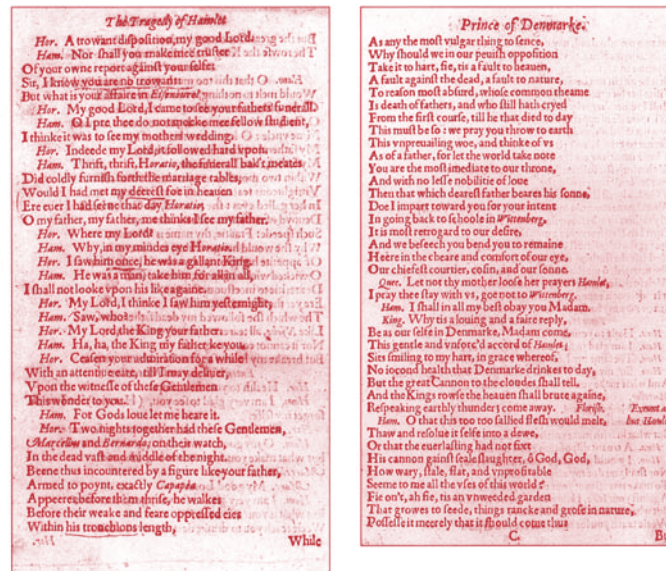 The Tragedy of Hamlet
Hor. A trowant disposition, my good Lord.
Ham. Nor shall you make mine truster
Of your owne report against your selfe.
Sir, I know you are no trowant:
But what is your affaire in Elsenoure?
Hor. My good Lord, I came to see your fathers funerall.
Ham. O I pre thee do not mocke mee fellow studient,
I thinke it was to see my mothers wedding.
Hor. Indeede my Lord, it followed hard vpon.
Ham. Thrift, thrift, Horatio, the funerall bak't meates
Did coldly furnish forth the marriage tables,
Would I had met my deerest foe in heauen
Ere euer I had seene that day Horatio,
O my father, my father, me thinks I see my father.
Hor. Where my Lord?
Ham. Why, in my mindes eye Horatio,
Hor. I saw him once, he was a gallant King.
Ham. He was a man, take him for all in all,
I shall not looke vpon his like againe.
Hor. My Lord, I thinke I saw him yesternight,
Ham. Saw, who?
Hor. My Lord, the King your father
Ham. Ha, ha, the King my father ke you.
Hor. Ceasen your admiration for a while
With an attentiue eare, till I may deliuer,
Vpon the witnesse of these Gentlemen
This wonder to you.
Ham. For Gods loue let me heare it.
Hor. Two nights together had these Gentlemen,
Marcellus and Bernardo, on their watch,
In the dead vast and middle of the night.
Beene thus incountered by a figure like your father,
Armed to poynt, exactly Capapea
Appeeres before them thrise, he walkes
Before their weake and feare oppressed eies
Within his tronchions length,
While
Prince of Denmarke.
As any the most vulgar thing to sence,
Why should we in our peuish opposition
Take it to hart, fie, tis a fault to heauen,
A fault against the dead, a fault to nature,
To reason most absurd, whose common theame
Is death of fathers, and who still hath cryed
From the first course, till he that died to day
This must be so: we pray you throw to earth
This vnpreuailing woe, and thinke of vs
As of a father, for let the world take note
You are the most imediate to our throne,
And with no lesse nobilitie of loue
Then that which dearest father beares his sonne,
Doe I impart toward you for your intent
In going back to schoole in Wittenberg,
It is most retrogard to our desire,
And we beseech you bend you to remaine
Heere in the cheare and comfort of our eye,
Our chiefest courtier, cosin, and our sonne.
Quee. Let not thy mother loose her prayers Hamlet,
I pray thee stay with vs, goe not to Wittenberg.
Ham. I shall in all my best obay you Madam.
King. Why tis a louing and a faire reply,
Be as our selfe in Denmarke, Madam come,
This gentle and vnforc'd accord of Hamlet
Sits smiling to my hart, in grace whereof,
No iocond health that Denmarke drinkes to day,
But the great Cannon to the cloudes shall tell.
And the Kings rowse the heauen shall brute againe,
Respeaking earthly thunder; come away. Florish. Exeunt
Ham. O that this too too sallied flesh would melt, but Hamle
Thaw and resolue it selfe into a dewe,
Or that the euerlasting had not fixt
His cannon gainst seale slaughter, ô God, God,
How wary, stale, flat, and vnprofitable
Seeme to me all the vses of this world?
Fie on't, ah fie, tis an vnweeded garden
That growes to seede, things rancke and grose in nature,
Possesse it meerely that it should come thus
C. Bu